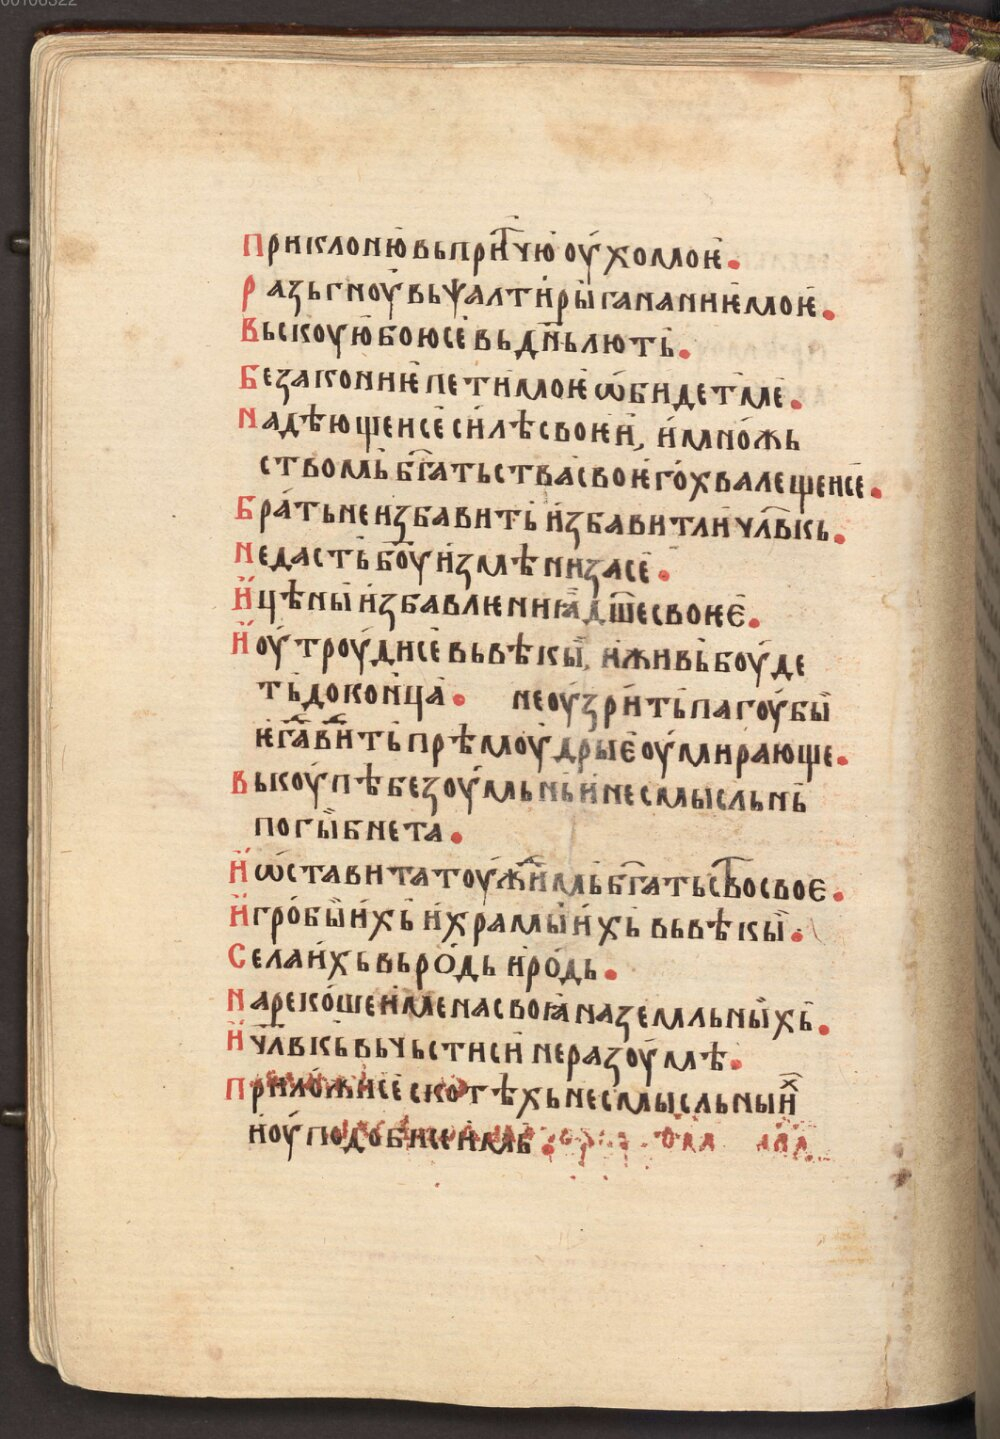 00106322
Приклоню вь притⷱ҇ю оу҆хо моѥ.
Разьгноу вь ѱалтири ганание моѥ.
Вьскоую бою се вь дн҃ь лють.
Безакониѥ пети моѥ ѡ҆бидет ме.
Надѣющеи се си́лѣ своѥи, и҆ мно́жь
ствомь бг҃атьства своѥго́ хвалещеи се.
Бра́ть не избавить и҆збавит ли чл҃вкь.
Не дасть бо҃у и҆змѣни за се.
И҆ цѣны и҆збавлѥниꙗ дш҃е своѥѥ.
И҆ оу҆троуди се вь вѣкы, и҆ живь боуде
ть до коньца. не оу҆зрить пагоубы
ѥгⷣа виⷣть прѣмоудрыѥ оу҆мирающе.
Вькоупѣ безоумьнь и҆ несмысльнь
погыбнета.
И҆ ѡ҆ставита тоуждиⷨмь бг҃атьство своѥ.
И҆ гробы и҆хь и҆ храмы и҆хь вь вѣкы.
Села и҆хь вь родь и҆ родь.
Нарекоше и҆мена своꙗ на земльныхь.
И҆ чл҃вкь вь чьсти си и не разоумѣ.
Приложи се скотѣхь несмысльныиⷯ
и҆ оу҆подоби се имь.